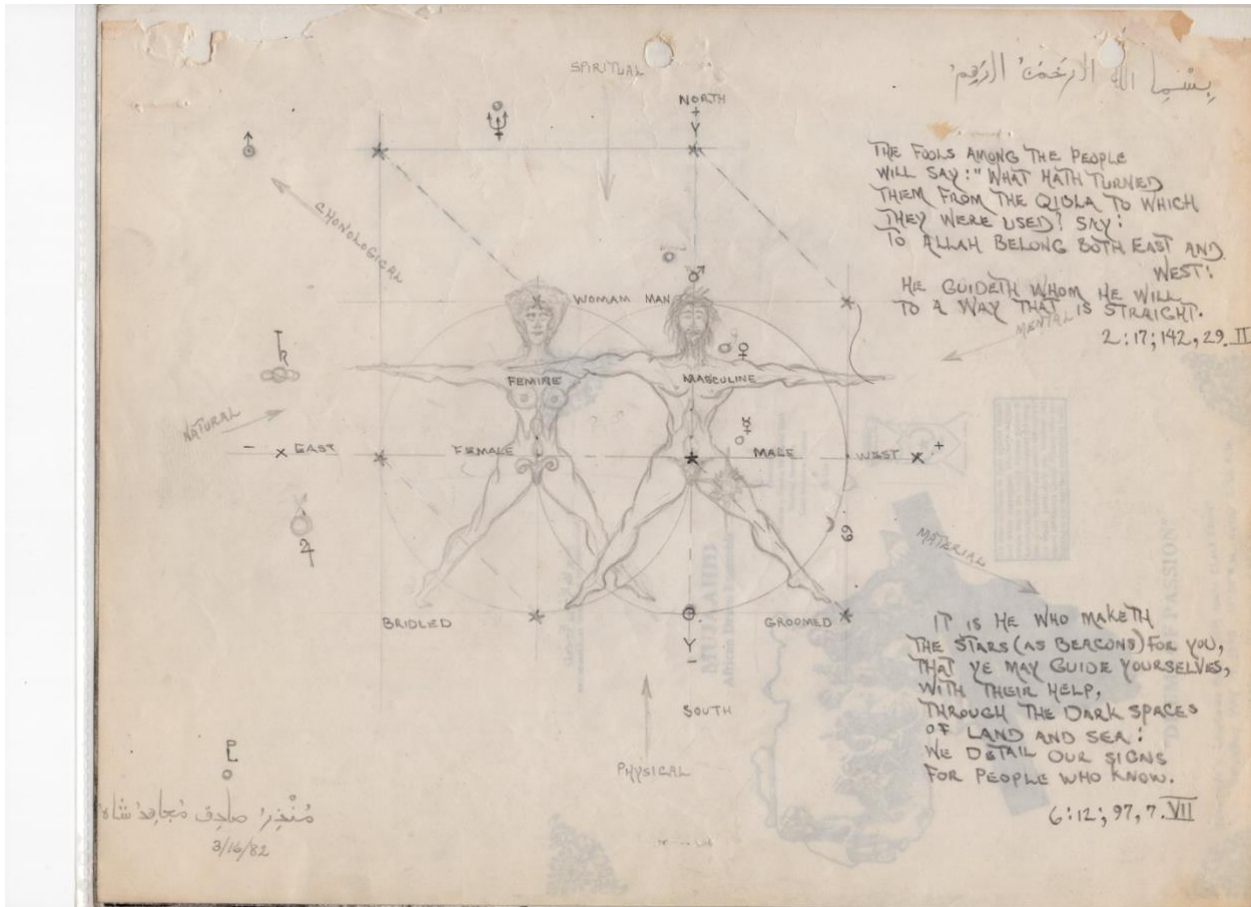 SPIRITUAL
NORTH
+
Y
بِسْمِ اللّٰهِ الرَّحْمٰنِ الرَّحِيْمِ
THE FOOLS AMONG THE PEOPLE
WILL SAY: "WHAT HATH TURNED
THEM FROM THE QIBLA TO WHICH
THEY WERE USED? SAY:
TO ALLAH BELONG BOTH EAST AND
WEST:
HE GUIDETH WHOM HE WILL
TO A WAY THAT IS STRAIGHT.
2:17; 142, 29. II
CHONOLOGICAL
WOMAM MAN
MENTAL
FEMINE MASCULINE
NATURAL
- x EAST FEMALE MALE WEST x +
69
MATERIAL
BRIDLED GROOMED
Y
-
SOUTH
PHYSICAL
IT IS HE WHO MAKETH
THE STARS (AS BEACONS) FOR YOU,
THAT YE MAY GUIDE YOURSELVES,
WITH THEIR HELP,
THROUGH THE DARK SPACES
OF LAND AND SEA:
WE DETAIL OUR SIGNS
FOR PEOPLE WHO KNOW.
6:12; 97, 7. VII
مُنْذِرُ صادِق مُجاهِدُ شاه
3/16/82
MUJAHID
"D OF PASSION"